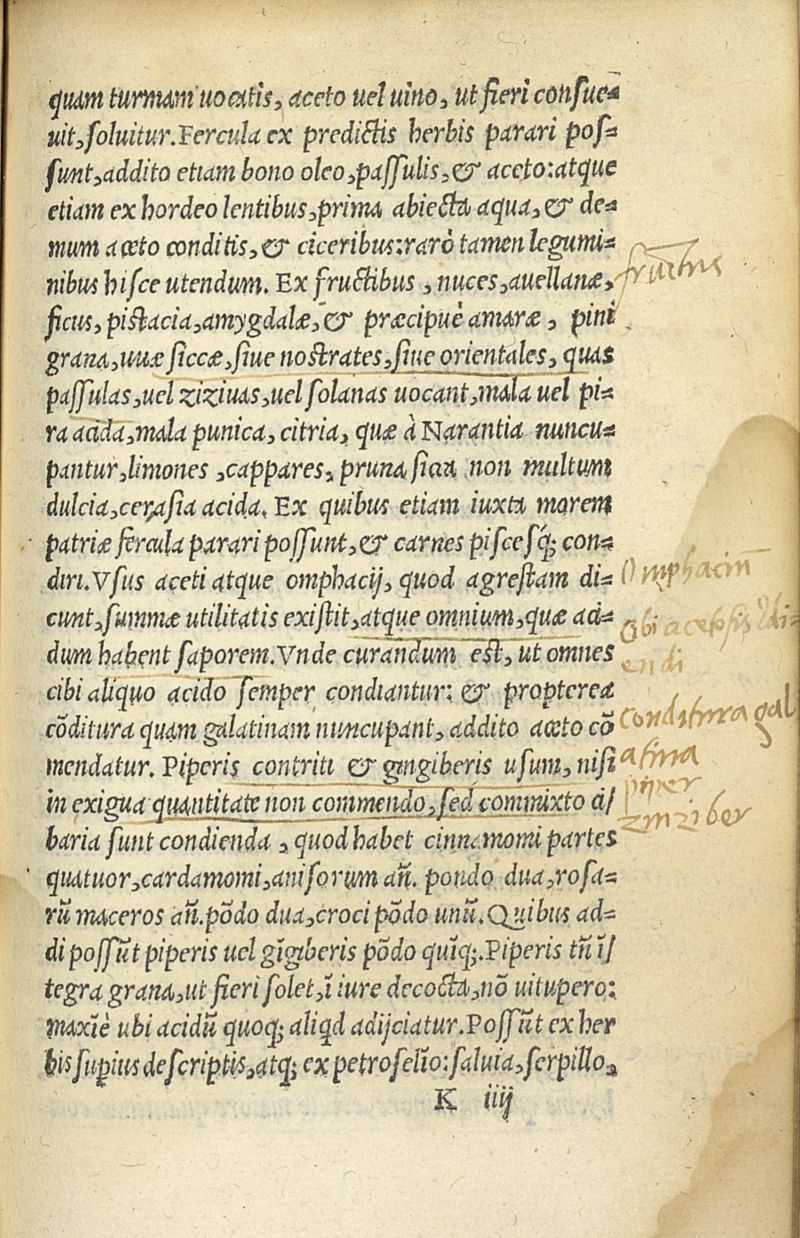 quam turmam uocatis, aceto uel uino, ut fieri consue-
uit, soluitur. Fercula ex predictis herbis parari pos-
sunt, addito etiam bono oleo, passulis, & aceto: atque
etiam ex hordeo lentibus, prima abiecta aqua, & de-
mum aceto conditis, & ciceribus: rarò tamen legumi-
nibus hisce utendum. Ex fructibus, nuces, auellanæ,
fructus
ficus, pistacia, amygdalæ, & præcipuè amaræ, pini
grana, uuæ siccæ, siue nostrates, siue orientales, quas
passulas, uel ziziuas, uel solanas uocant, mala uel pi-
ra acida, mala punica, citria, quæ à Narantia nuncu-
pantur, limones, cappares, pruna sicca non multum
dulcia, cerasia acida. Ex quibus etiam iuxta morem
patriæ fercula parari possunt, & carnes piscesq; con-
diri. Vsus aceti atque omphacij, quod agrestam di-
Omphaciũ
cunt, summæ utilitatis existit, atque omnium, quæ aci-
dum habent saporem. Vnde curandum est, ut omnes
cibi aliquo acido semper condiantur: & propterea
cõditura quam galatinam nuncupant, addito aceto cõ
Conditura gal
mendatur. Piperis contriti & gingiberis usum, nisi
atina
piper
in exigua quantitate non commendo, sed commixto ci/
zinziber
baria sunt condienda, quod habet cinnamomi partes
quatuor, cardamomi, anisorum añ. pondo dua, rosa-
rũ maceros añ. põdo dua, croci põdo unũ. Quibus ad-
di possũt piperis uel gĩgiberis põdo quĩq;. Piperis tñ ĩ/
tegra grana, ut fieri solet, ĩ iure decocta, nõ uitupero:
maxĩè ubi acidũ quoq; aliqd adijciatur. Possũt ex her
bis supius descriptis, atq; ex petroselĩo: saluia, serpillo,
K iiij